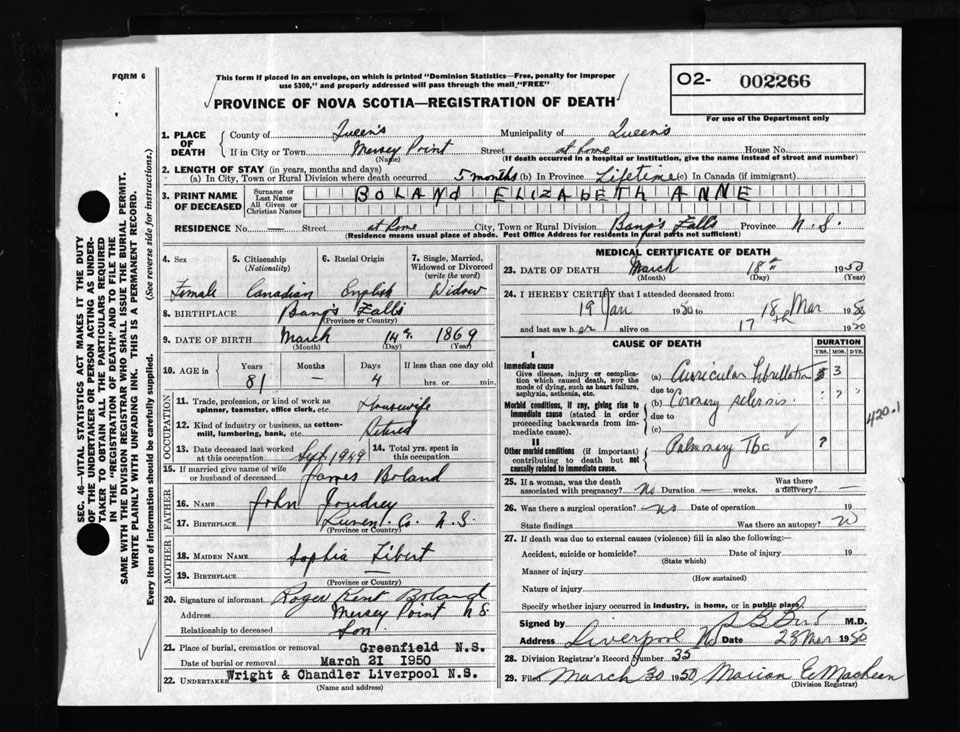 FORM 6
This form if placed in an envelope, on which is printed "Dominion Statistics—Free, penalty for improper
use $300," and properly addressed will pass through the mail "FREE"
PROVINCE OF NOVA SCOTIA—REGISTRATION OF DEATH
O2- 002266
For use of the Department only
SEC. 46—VITAL STATISTICS ACT MAKES IT THE DUTY
OF THE UNDERTAKER OR PERSON ACTING AS UNDER-
TAKER TO OBTAIN ALL THE PARTICULARS REQUIRED
IN THE "REGISTRATION OF DEATH" AND TO FILE THE
SAME WITH THE DIVISION REGISTRAR WHO SHALL ISSUE THE BURIAL PERMIT.
WRITE PLAINLY WITH UNFADING INK. THIS IS A PERMANENT RECORD.
Every item of information should be carefully supplied. (See reverse side for instructions.)
1. PLACE OF DEATH County of Queen's Municipality of Queen's
If in City or Town Mersey Point Street at home House No.
(Name) (If death occurred in a hospital or institution, give the name instead of street and number)
2. LENGTH OF STAY (in years, months and days)
(a) In City, Town or Rural Division where death occurred 5 months (b) In Province Lifetime (c) In Canada (if immigrant)
3. PRINT NAME OF DECEASED Surname or Last Name All Given or Christian Names BOLAND ELIZABETH ANNE
RESIDENCE No. — Street at home City, Town or Rural Division Bang's Falls Province N.S.
(Residence means usual place of abode. Post Office Address for residents in rural parts not sufficient)
4. Sex 5. Citizenship (Nationality) 6. Racial Origin 7. Single, Married, Widowed or Divorced (write the word)
Female Canadian English Widow
8. BIRTHPLACE Bang's Falls
(Province or Country)
9. DATE OF BIRTH March 14th 1869
(Month) (Day) (Year)
10. AGE in Years Months Days If less than one day old
81 — 4 hrs. or min.
OCCUPATION
11. Trade, profession, or kind of work as spinner, teamster, office clerk, etc. Housewife
12. Kind of industry or business, as cotton-mill, lumbering, bank, etc. Retired
13. Date deceased last worked at this occupation Sept 1949 14. Total yrs. spent in this occupation.
15. If married give name of wife or husband of deceased James Boland
FATHER
16. NAME John Joudrey
17. BIRTHPLACE Lunen. Co. N.S.
(Province or Country)
MOTHER
18. MAIDEN NAME Sophia
19. BIRTHPLACE —
(Province or Country)
20. Signature of informant Roger Kent Boland
Address Mersey Point N.S.
Relationship to deceased Son
21. Place of burial, cremation or removal Greenfield N.S.
Date of burial or removal March 21 1950
22. UNDERTAKER Wright & Chandler Liverpool N.S.
(Name and address)
MEDICAL CERTIFICATE OF DEATH
23. DATE OF DEATH March 18th 1950
(Month) (Day) (Year)
24. I HEREBY CERTIFY that I attended deceased from:
19 Jan 1950 to 18th Mar 1950
and last saw her alive on 17 1950
CAUSE OF DEATH DURATION
YRS. MOS. DYS.
I
Immediate cause
Give disease, injury or complication which caused death, NOT the mode of dying, such as heart failure, asphyxia, asthenia, etc.
(a) Auricular Fibrillation 3
due to
Morbid conditions, if any, giving rise to immediate cause (stated in order proceeding backwards from immediate cause).
(b) Coronary sclerosis ?
due to
(c)
420.1
II
Other morbid conditions (if important) contributing to death but not causally related to immediate cause.
Pulmonary Tbc ?
25. If a woman, was the death associated with pregnancy? No Duration — weeks. Was there a delivery? —
26. Was there a surgical operation? No Date of operation 19
State findings Was there an autopsy?
27. If death was due to external causes (violence) fill in also the following:—
Accident, suicide or homicide? Date of injury 19
(State which)
Manner of injury
(How sustained)
Nature of injury
Specify whether injury occurred in industry, in home, or in public place
Signed by M.D.
Address Liverpool NS Date 28 Mar 1950
28. Division Registrar's Record Number 35
29. Filed March 30 1950 Marion E MacKeen
(Division Registrar)